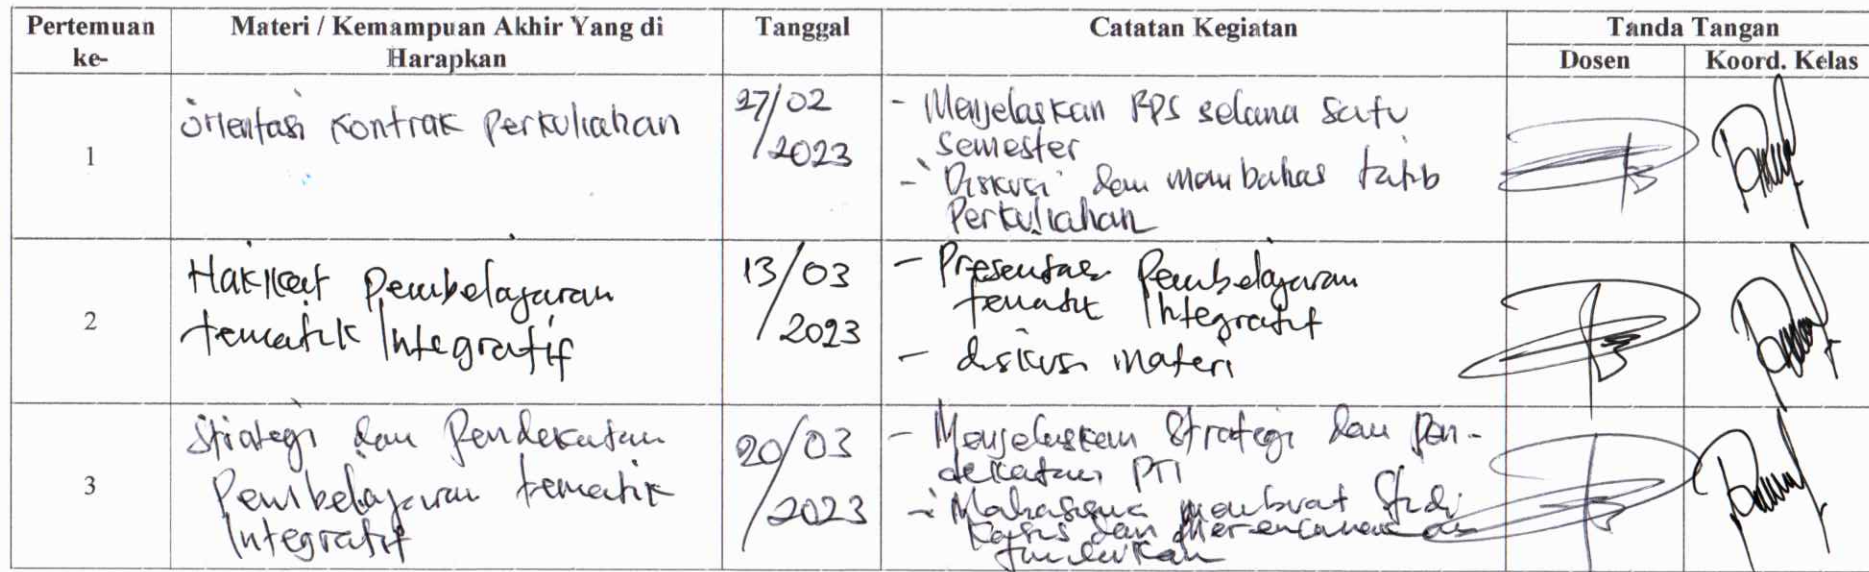 Pertemuan ke-
Materi / Kemampuan Akhir Yang di Harapkan
Tanggal
Catatan Kegiatan
Tanda Tangan
Dosen
Koord. Kelas
1
Orientasi Kontrak Perkuliahan
27/02
/2023
- Menjelaskan RPS selama satu
semester
- Diskusi dan membahas tatib
Perkuliahan
2
Hakikat Pembelajaran
tematik Integratif
13/03
/2023
- Presentasi Pembelajaran
tematik Integratif
- diskusi materi
3
Strategi dan Pendekatan
Pembelajaran tematik
Integratif
20/03
/2023
- Menjelaskan Strategi dan Pen-
dekatan PTI
- Mahasiswa membuat Studi
Kasus dan merencanakan